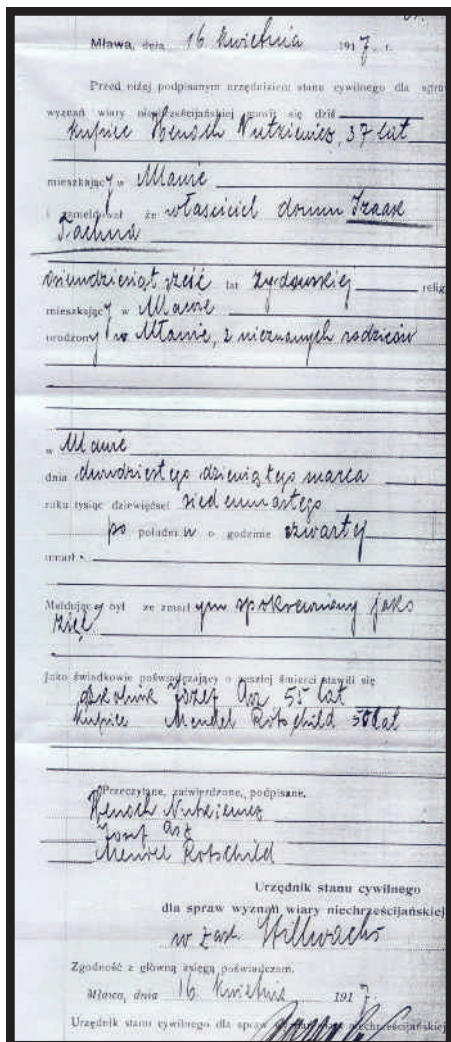 Mława, dnia 16 kwietnia 1917. r.
Przed niżej podpisanym urzędnikiem stanu cywilnego dla spraw
wyznań wiary niechrześcijańskiej stawił się dziś
kupiec Henoch Nutkiewicz, 37 lat
mieszkający w Mławie
i zameldował że właściciel domu Izaak
dziewięćdziesiąt sześć lat żydowskiej religi
mieszkający w Mławie
urodzony w Mławie, z nieznanych rodziców
w Mławie
dnia dwudziestego dziewiątego marca
roku tysiąc dziewięćset siedemnastego
po połudn o godzinie czwartej
umarł.
Meldujący był ze zmarłym spokrewniony jako
zięć
Jako świadkowie poświadczający o zaszłej śmierci stawili się
szkolnik Józef 55 lat
kupiec Mendel Rotschild 50 lat
Przeczytane, zatwierdzone, podpisane.
Henoch Nutkiewicz
Józef
Mendel Rotschild
Urzędnik stanu cywilnego
dla spraw wyznań wiary niechrześcijańskiej
w zast.
Zgodność z główną księgą poświadczam.
Mława, dnia 16. kwietnia 1917.
Urzędnik stanu cywilnego dla spraw wyznań wiary niechrześcijańskiej